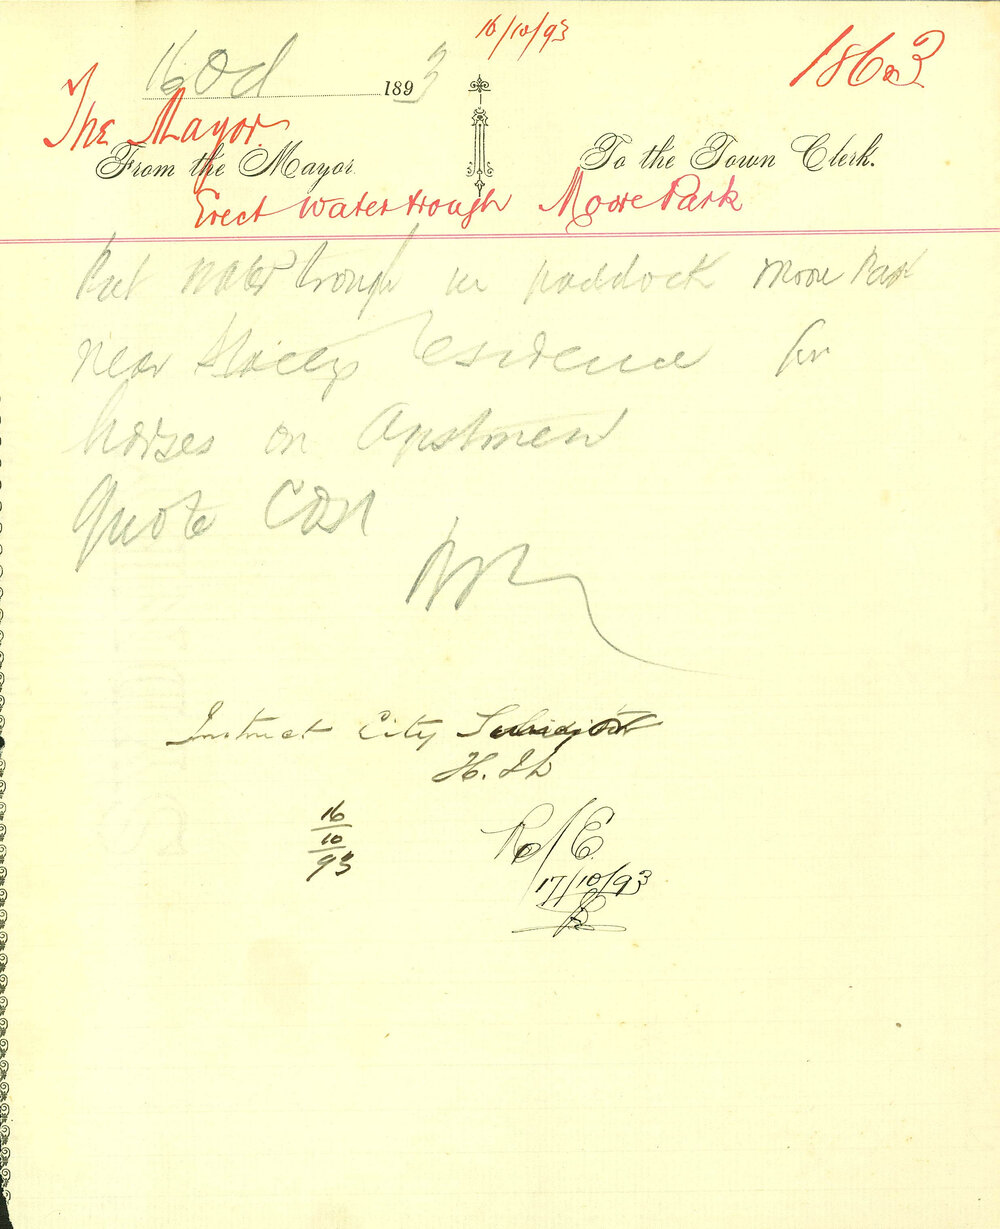 16/10/93
1863
16 Oct 1893
The Mayor
From the Mayor
To the Town Clerk.
Erect Water trough Moore Park
Put Water trough in paddock Moore Park
near residence for
horses on Agistment
Quote Cost
Instruct City
16
10
93
17/10/93